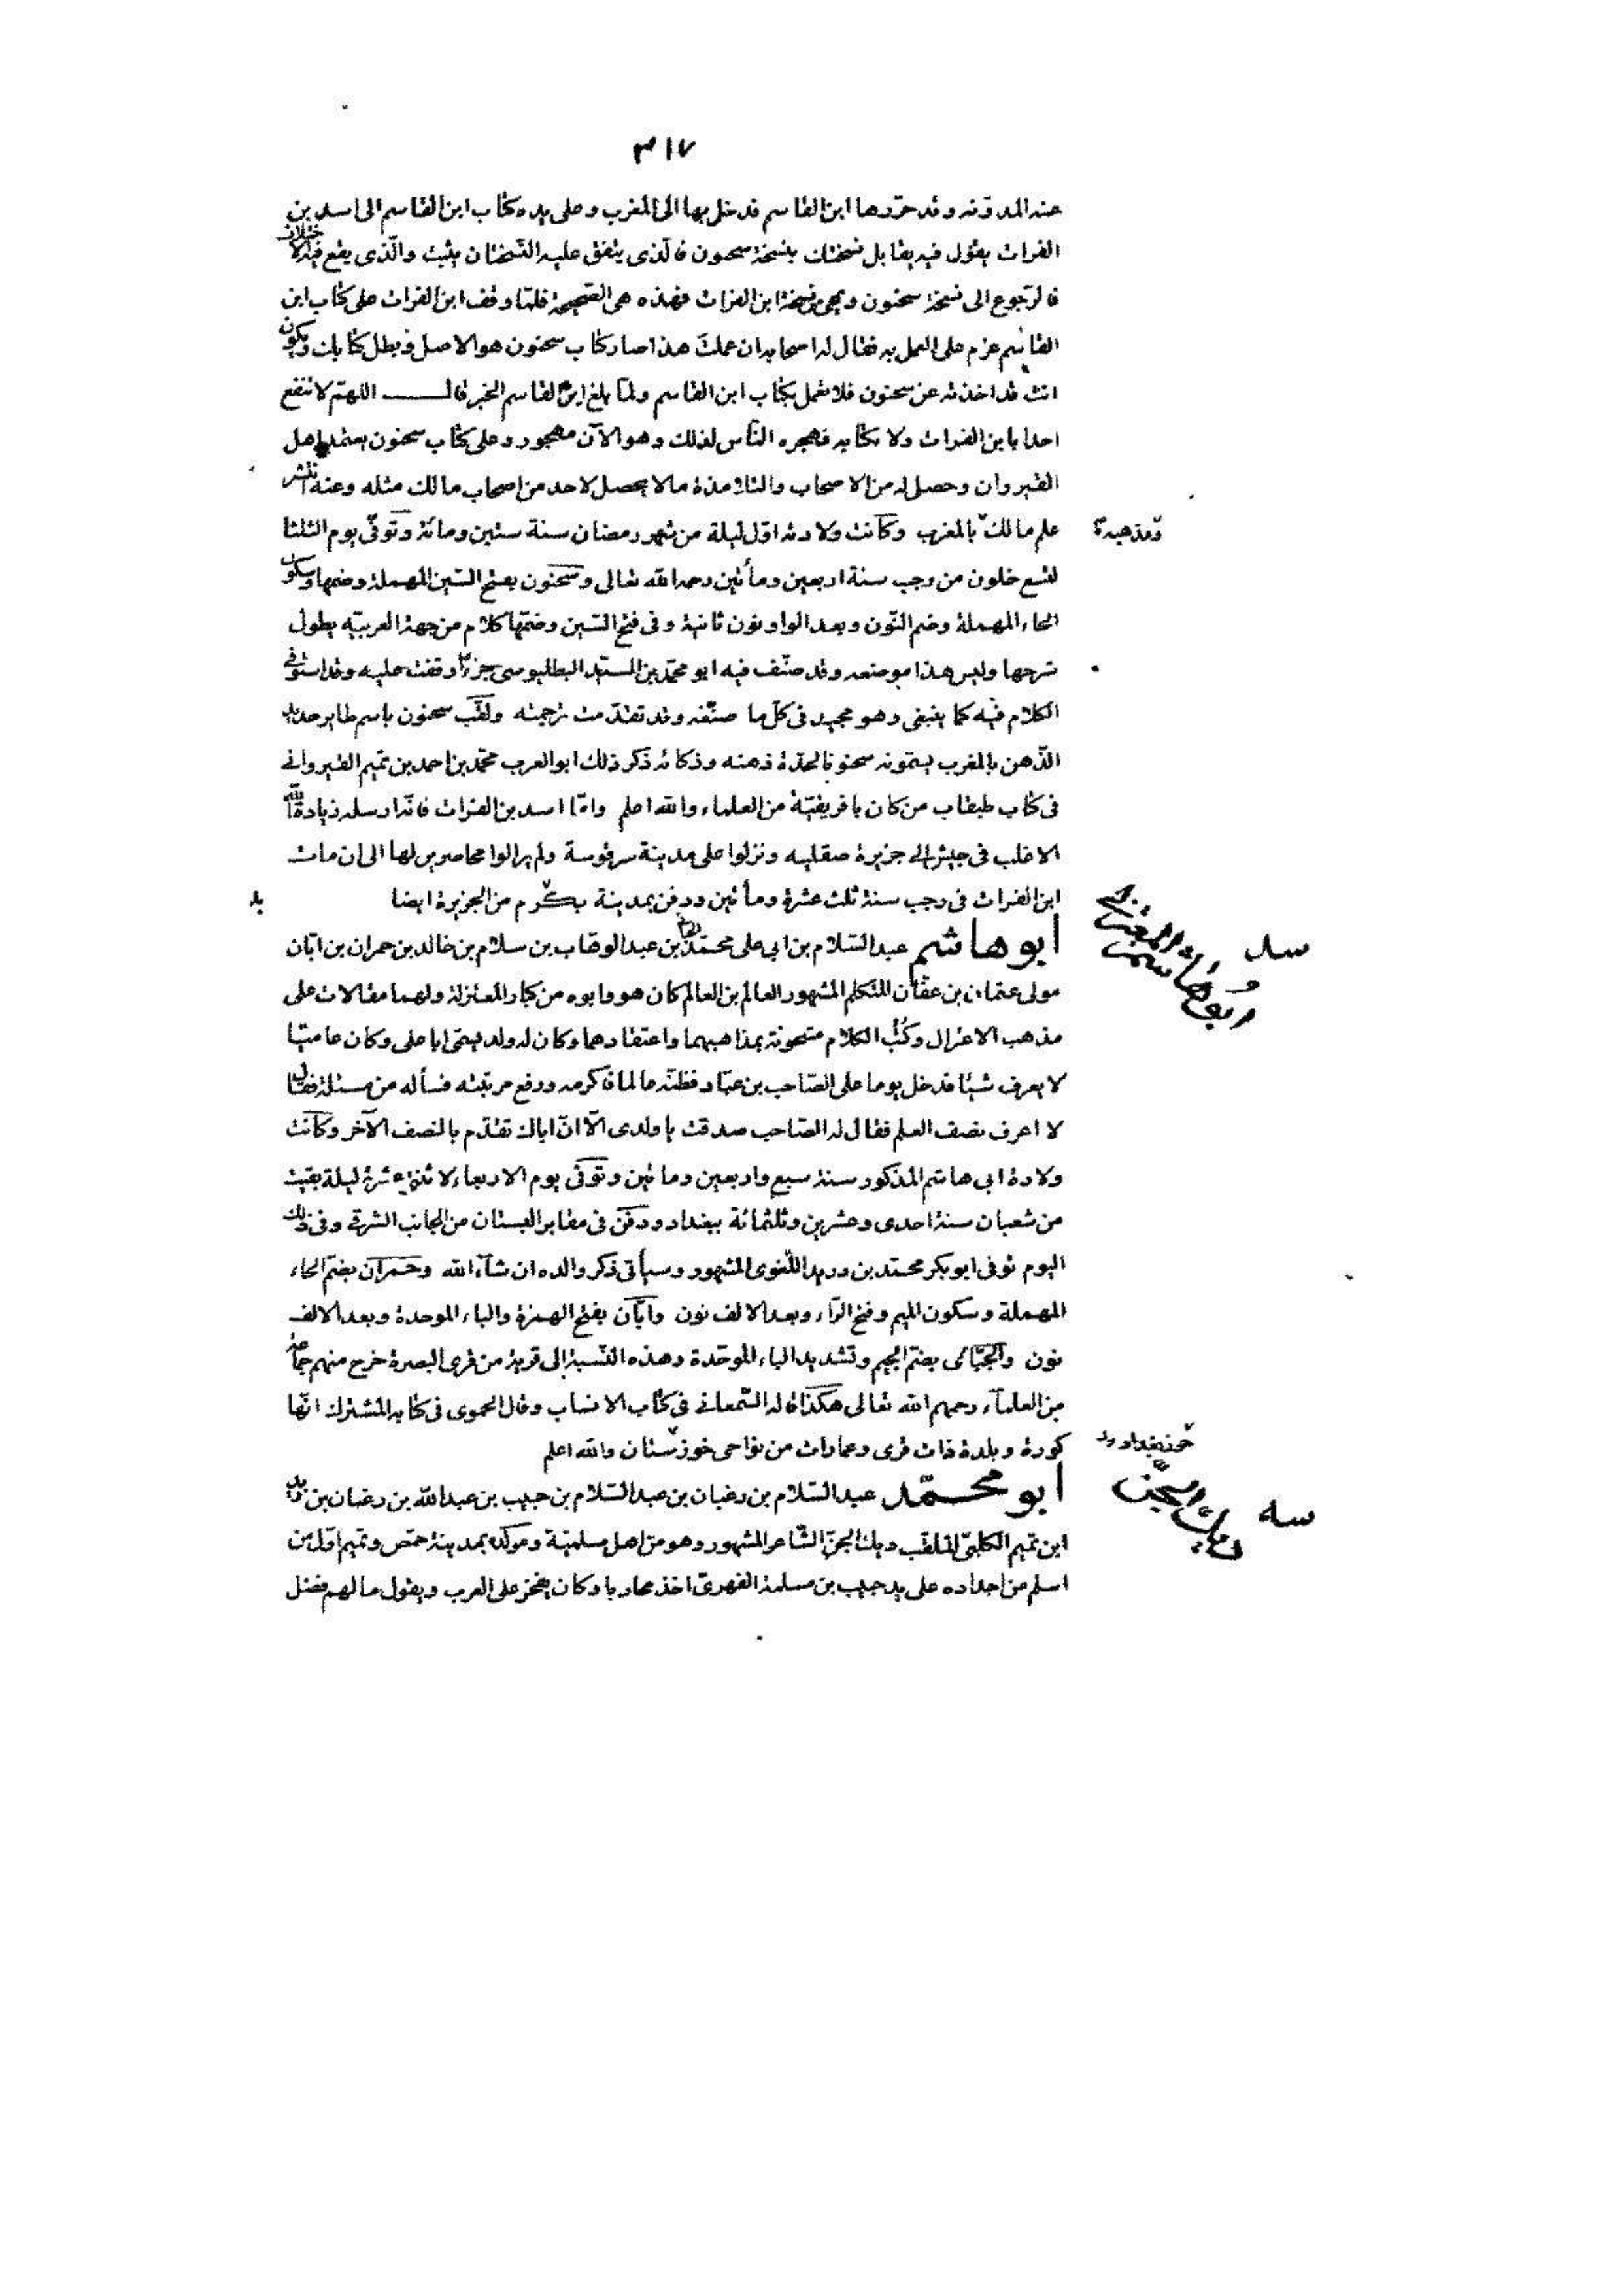 ٣١٧
عنه المدوّنه وقد حرّرها ابن القاسم فدخل بها الى المغرب وعلى يده كتاب ابن القاسم الى اسد بن
الفرات يقول فيه يقابل نسختك بنسخة سحنون فالذى يتفق عليه النسختان يثبت والّذى يقع فيه الاختلاف
فالرّجوع الى نسخة سحنون ويمحى نسخة ابن الفرات فهذه هى الصّحيحة فلمّا وقف ابن الفرات على كتاب ابن
القاسم عزم على العمل به فقال له اصحابه ان عملت هذا صار كتاب سحنون هو الاصل وبطل كتابك وتكون
انت قد اخذته عن سحنون فلا تعمل بكتاب ابن القاسم ولمّا بلغ ابن القاسم الخبر قال اللهمّ لا تنفع
احدا بابن الفرات ولا بكتابه فهجره النّاس لذلك وهو الآن مهجور وعلى كتاب سحنون يعتمد اهل
القيروان وحصل له من الاصحاب والتلامذة ما لا يحصل لاحد من اصحاب مالك مثله وعنه انتشر
علم مالك بالمغرب وكانت ولادته اوّل ليلة من شهر رمضان سنة ستين ومائة وتوفّى يوم الثلثا
لتسع خلون من رجب سنة اربعين ومأتين رحمه الله تعالى وسحنون بفتح السّين المهملة وضمها وسكون
الحاء المهملة وضم النّون وبعد الواو نون ثانية وفى فتح السّين وضمّها كلام من جهة العربيّه يطول
شرحها وليس هذا موضعه وقد صنّف فيه ابو محمّد بن السيّد البطليوسى جزءًا وقفت عليه وقد استوفى
الكلام فيه كما ينبغى وهو مجيد فى كلّ ما صنّفه وقد تقدّمت ترجمته ولقّب سحنون باسم طاير حديد
الذّهن بالمغرب يسمّونه سحنونا لحدّة ذهنه وذكائه ذكر ذلك ابو العرب محمّد بن احمد بن تميم القيروانى
فى كتاب طبقات من كان بافريقيّة من العلماء والله اعلم وامّا اسد بن الفرات فانّه ارسله زيادة الله
الاغلب فى جيش الى جزيرة صقليه ونزلوا على مدينة سرقوسة ولم يزالوا محاصرين لها الى ان مات
ابن الفرات فى رجب سنة ثلث عشرة ومأتين ودفن بمدينة بكرم من الجزيرة ايضا
أبو هاشم عبد السّلام بن ابى على محمّد بن عبد الوهّاب بن سلام بن خالد بن حمران بن ابّان
مولى عثمان بن عفّان المتكلم المشهور العالم بن العالم كان هو وابوه من كبار المعتزلة ولهما مقالات على
مذهب الاعتزال وكُتُب الكلام مشحونة بمذاهبهما واعتقادهما وكان له ولد يسمّى ابا على وكان عاميّا
لا يعرف شيئا فدخل يوما على الصّاحب بن عبّاد فظنّه عالما فاكرمه ورفع مرتبته فسأله من مسئلة فقال
لا اعرف نصف العلم فقال له الصّاحب صدقت يا ولدى الّا انّ اباك تقدّم بالنصف الآخر وكانت
ولادة ابى هاشم المذكور سنة سبع واربعين ومائين وتوفى يوم الاربعاء لاثنتى عشرة ليلة بقيت
من شعبان سنة احدى وعشرين وثلثمائة ببغداد ودفن فى مقابر البستان من الجانب الشرقى وفى ذلك
اليوم توفى ابو بكر محمّد بن دريد اللّغوى المشهور وسيأتى ذكر والده ان شآء الله وحمران بضم الحاء
المهملة وسكون الميم وفتح الرّاء وبعد الالف نون وابّان بفتح الهمزة والباء الموحدة وبعد الالف
نون والجبّائى بضمّ الجيم وتشديد الباء الموحّدة وهذه النّسبة الى قرية من قرى البصرة خرج منهم جماعة
من العلمآء رحمهم الله تعالى هكذا قاله السّمعانى فى كتاب الانساب وقال الحموى فى كتابه المشترك انّها
كورة وبلدة ذات قرى وعمارات من نواحى خوزستان والله اعلم
أبو محمّد عبد السّلام بن رغبان بن عبد السّلام بن حبيب بن عبد الله بن رغبان بن زيد
ابن تميم الكلبىّ الملقّب ديك الجنّ الشّاعر المشهور وهو من اهل سلميّة ومولده بمدينة حمص وتميم اوّل من
اسلم من اجداده على يد حبيب بن مسلمة الفهرىّ اخذ محاربا وكان يفخر على العرب ويقول ما لهم فضل
ومذهبه
سد
ابو هاشم
سه
ديك الجنّ